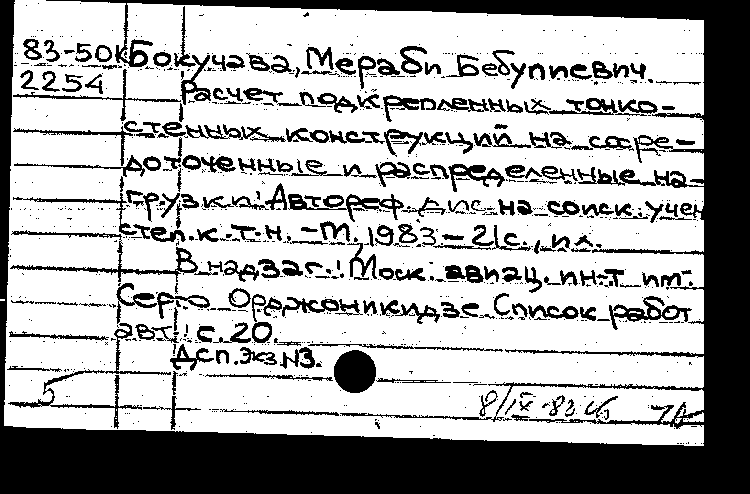 83-50к Бокучава, Мераби Бебуриевич.
2254
Расчет подкрепленных тонко-
стенных конструкций на сосре-
доточенные и распределенные на-
грузки: Автореф. дис. на соиск. учен
степ. к. т. н. - М, 1983 - 21с., ил.
В надзаг.: Моск. авиац. ин-т им.
Серго Орджоникидзе Список работ
авт.: с. 20.
Дсп. Экз. N3.
5 8/IX-83